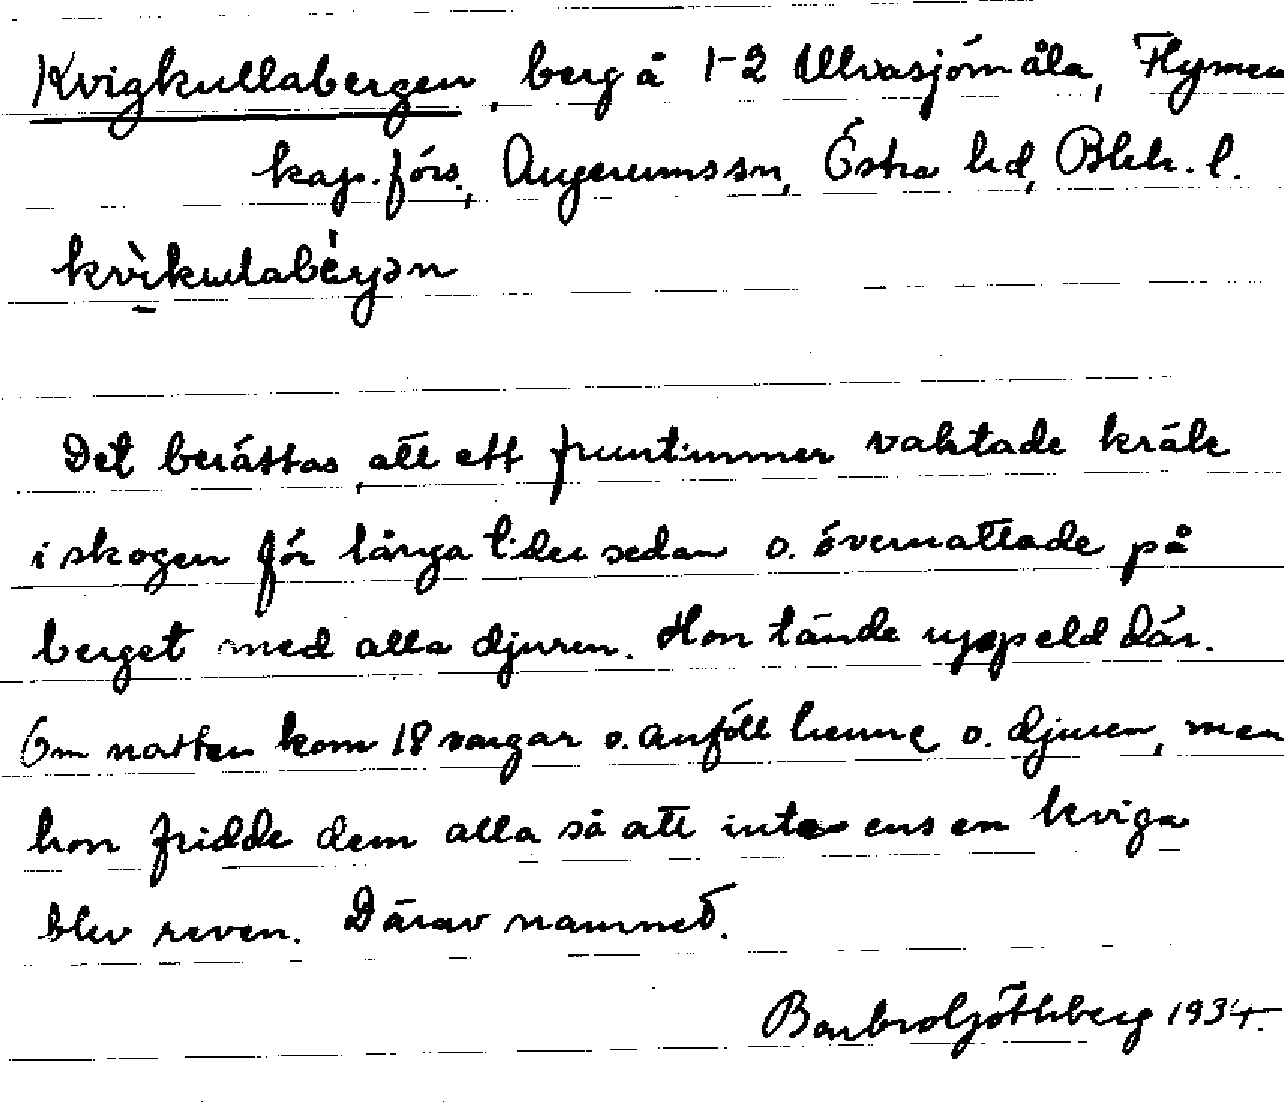 Kvigkullabergen, berg å 1-2 Ulvasjömåla, Flymen
kap. förs., Augerumssn, Östra hd, Blek. l.
kvìkullabɛ́rjən
Det berättas att ett fruntimmer vaktade kräk
i skogen för långa tider sedan o. övernattade på
berget med alla djuren. Hon tände upp eld där.
Om natten kom 18 vargar o. anföll henne o. djuren, men
hon fridde dem alla så att inte ens en kviga
blev reven. Därav namnet.
Barbro Göthberg 1934.